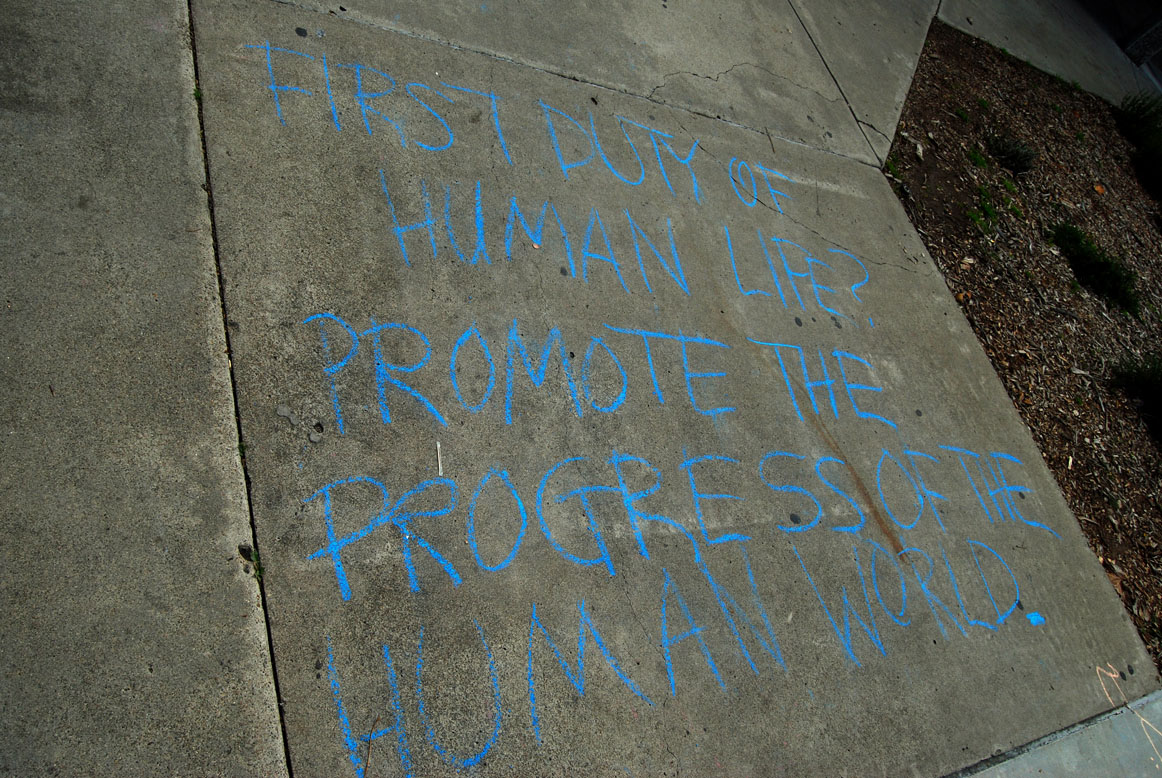 FIRST DUTY OF
HUMAN LIFE?
PROMOTE THE
PROGRESS OF THE
HUMAN WORLD.